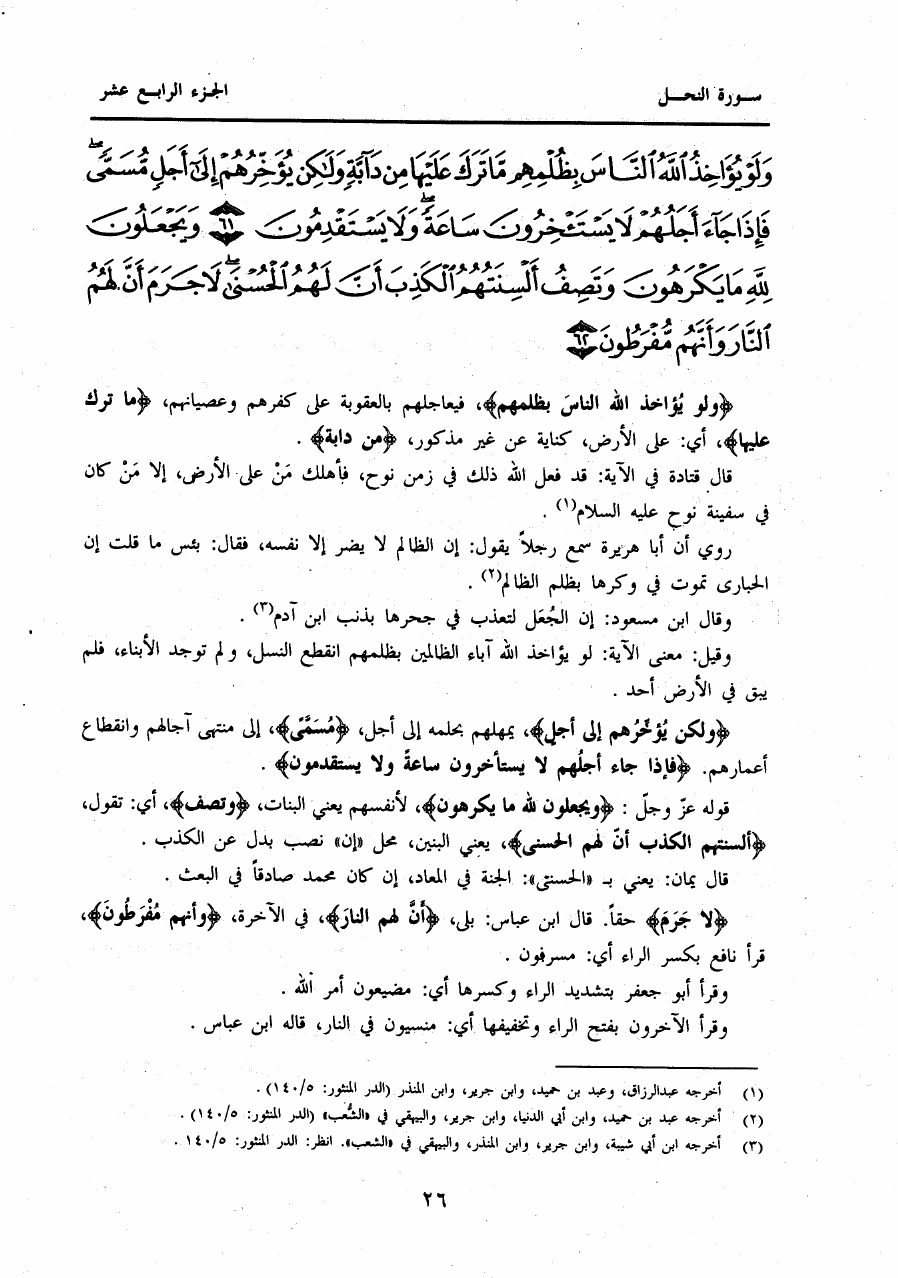 سورة النحل
الجزء الرابع عشر
وَلَوْ يُؤَاخِذُ ٱللَّهُ ٱلنَّاسَ بِظُلْمِهِم مَّا تَرَكَ عَلَيْهَا مِن دَآبَّةٍ وَلَٰكِن يُؤَخِّرُهُمْ إِلَىٰٓ أَجَلٍ مُّسَمًّى ۖ
فَإِذَا جَآءَ أَجَلُهُمْ لَا يَسْتَـْٔخِرُونَ سَاعَةً ۖ وَلَا يَسْتَقْدِمُونَ ٦١ وَيَجْعَلُونَ
لِلَّهِ مَا يَكْرَهُونَ وَتَصِفُ أَلْسِنَتُهُمُ ٱلْكَذِبَ أَنَّ لَهُمُ ٱلْحُسْنَىٰ ۖ لَا جَرَمَ أَنَّ لَهُمُ
ٱلنَّارَ وَأَنَّهُم مُّفْرَطُونَ ٦٢
﴿ولو يُؤاخذ الله الناسَ بظلمهم﴾، فيعاجلهم بالعقوبة على كفرهم وعصيانهم، ﴿ما ترك
عليها﴾، أي: على الأرض، كناية عن غير مذكور، ﴿من دابة﴾ .
قال قتادة في الآية: قد فعل الله ذلك في زمن نوح، فأهلك مَنْ على الأرض، إلا مَنْ كان
في سفينة نوح عليه السلام(١) .
روي أن أبا هريرة سمع رجلاً يقول: إن الظالم لا يضر إلا نفسه، فقال: بئس ما قلت إن
الحبارى تموت في وكرها بظلم الظالم(٢) .
وقال ابن مسعود: إن الجُعَل لتعذب في جحرها بذنب ابن آدم(٣) .
وقيل: معنى الآية: لو يؤاخذ الله آباء الظالمين بظلمهم انقطع النسل، ولم توجد الأبناء، فلم
يبق في الأرض أحد .
﴿ولكن يُؤخّرُهم إلى أجلٍ﴾، يمهلهم بحلمه إلى أجل، ﴿مُسَمَّى﴾، إلى منتهى آجالهم وانقطاع
أعمارهم. ﴿فإذا جاء أجلُهم لا يستأخرون ساعةً ولا يستقدمون﴾ .
قوله عزّ وجلّ : ﴿ويجعلون لله ما يكرهون﴾، لأنفسهم يعني البنات، ﴿وتصف﴾، أي: تقول،
﴿ألسنتهم الكذب أنّ لهم الحسنى﴾، يعني البنين، محل «إن» نصب بدل عن الكذب .
قال يمان: يعني بـ «الحسنى»: الجنة في المعاد، إن كان محمد صادقاً في البعث .
﴿لا جَرَمَ﴾ حقاً. قال ابن عباس: بلى، ﴿أَنَّ لهم النارَ﴾، في الآخرة، ﴿وأنهم مُفْرَطُونَ﴾،
قرأ نافع بكسر الراء أي: مسرفون .
وقرأ أبو جعفر بتشديد الراء وكسرها أي: مضيعون أمر الله .
وقرأ الآخرون بفتح الراء وتخفيفها أي: منسيون في النار، قاله ابن عباس .
(١) أخرجه عبدالرزاق، وعبد بن حميد، وابن جرير، وابن المنذر (الدر المنثور: ١٤٠/٥) .
(٢) أخرجه عبد بن حميد، وابن أبي الدنيا، وابن جرير، والبيهقي في «الشُّعب» (الدر المنثور: ١٤٠/٥) .
(٣) أخرجه ابن أبي شيبة، وابن جرير، وابن المنذر، والبيهقي في «الشعب». انظر: الدر المنثور: ١٤٠/٥ .
٢٦